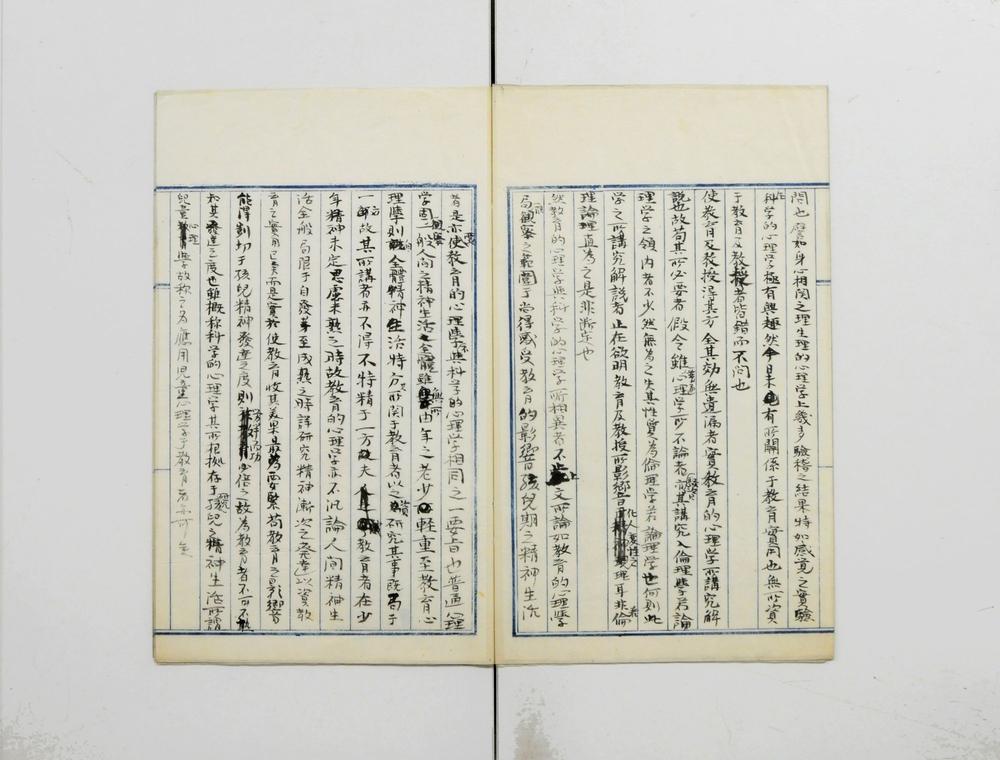 問也應如身心相関之理生理的心理学上幾多驗稽之結果特如感覚之實驗
科学的心理学極有興趣然今日未有所關係于教育實用也無所資
于教育及教授者皆錯而不问也
使教育及教授得其方全其効無遺漏者實教育的心理学所講究解
說也故苟其所必要者假令雖心理学所不論者亦其講究入倫理学若論
理学之領内者不少然無為之失其性質為倫理学若論理学也何則此
学之所講究解說者止在欲明教育及教授所影響化人之心理耳非倫
理論理直為之是非断定也
然教育的心理学與科学的心理学所相異者不止上文所論如教育的心理学
局観察之範圍于尚得感受教育的影響孩兒期之精神生活
者是亦使教育的心理学不與科学的心理学相同之一要旨也普通心理
学固観察一般人间之精神生活全體雖無所由年之老少軽重至教育心
理学則自全體精神生活特方所関于教育者以資研究其事既局于
一方故其所講者亦不得不特精于一方夫教育者在少
年精神未定思慮未熟之時故教育的心理学亦不汎論人间精神生
活全般局限于自發芽至成熟之時詳研究精神漸次之發達以資教
育之實用已矣而是實於使教育收其美果最為要緊苟教育之影響
能得剴切于孩兒精神發達之度則必倍之故為教育者不可不熟
知其發達之度也雖概称科学的心理学其所根拠存于孩兒之精神生活所謂
兒童心理学故称之為應用児童心理学于教育